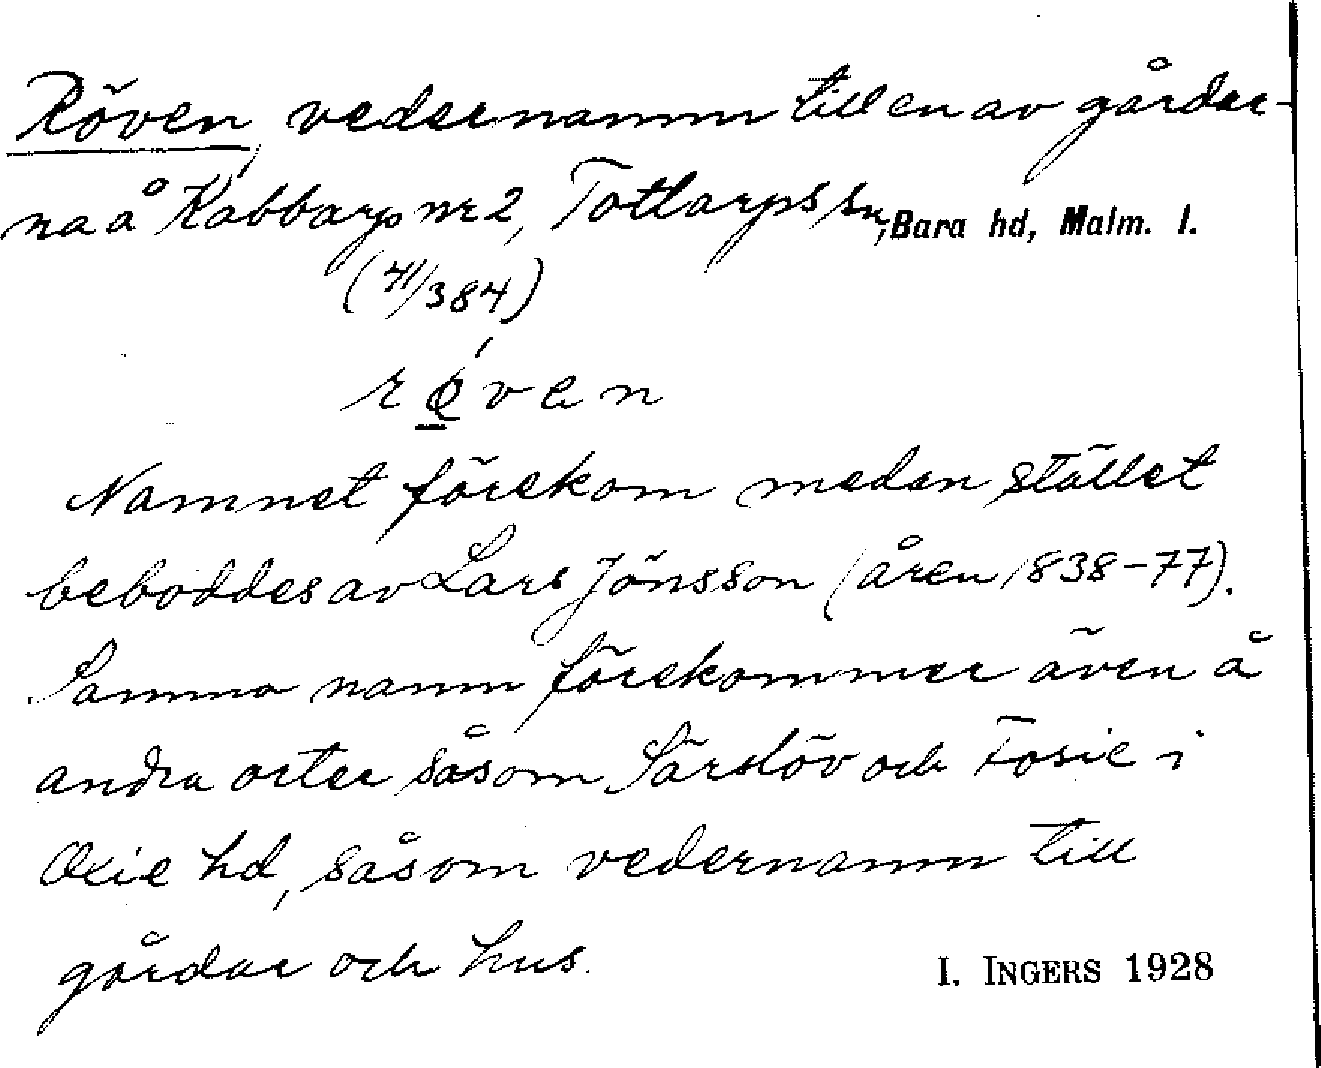 Röven, vedernamn till en av gårdar-
na å Kabbarp nr 2, Tottarps sn, Bara hd, Malm. l.
(41/384)
rǿ̱ven
Namnet förekom medan stället
beboddes av Lars Jönsson (åren 1838-77).
Samma namn förekommer även å
andra orter såsom Särslöv och Fosie i
Oxie hd, såsom vedernamn till
gårdar och hus.
I. INGERS 1928